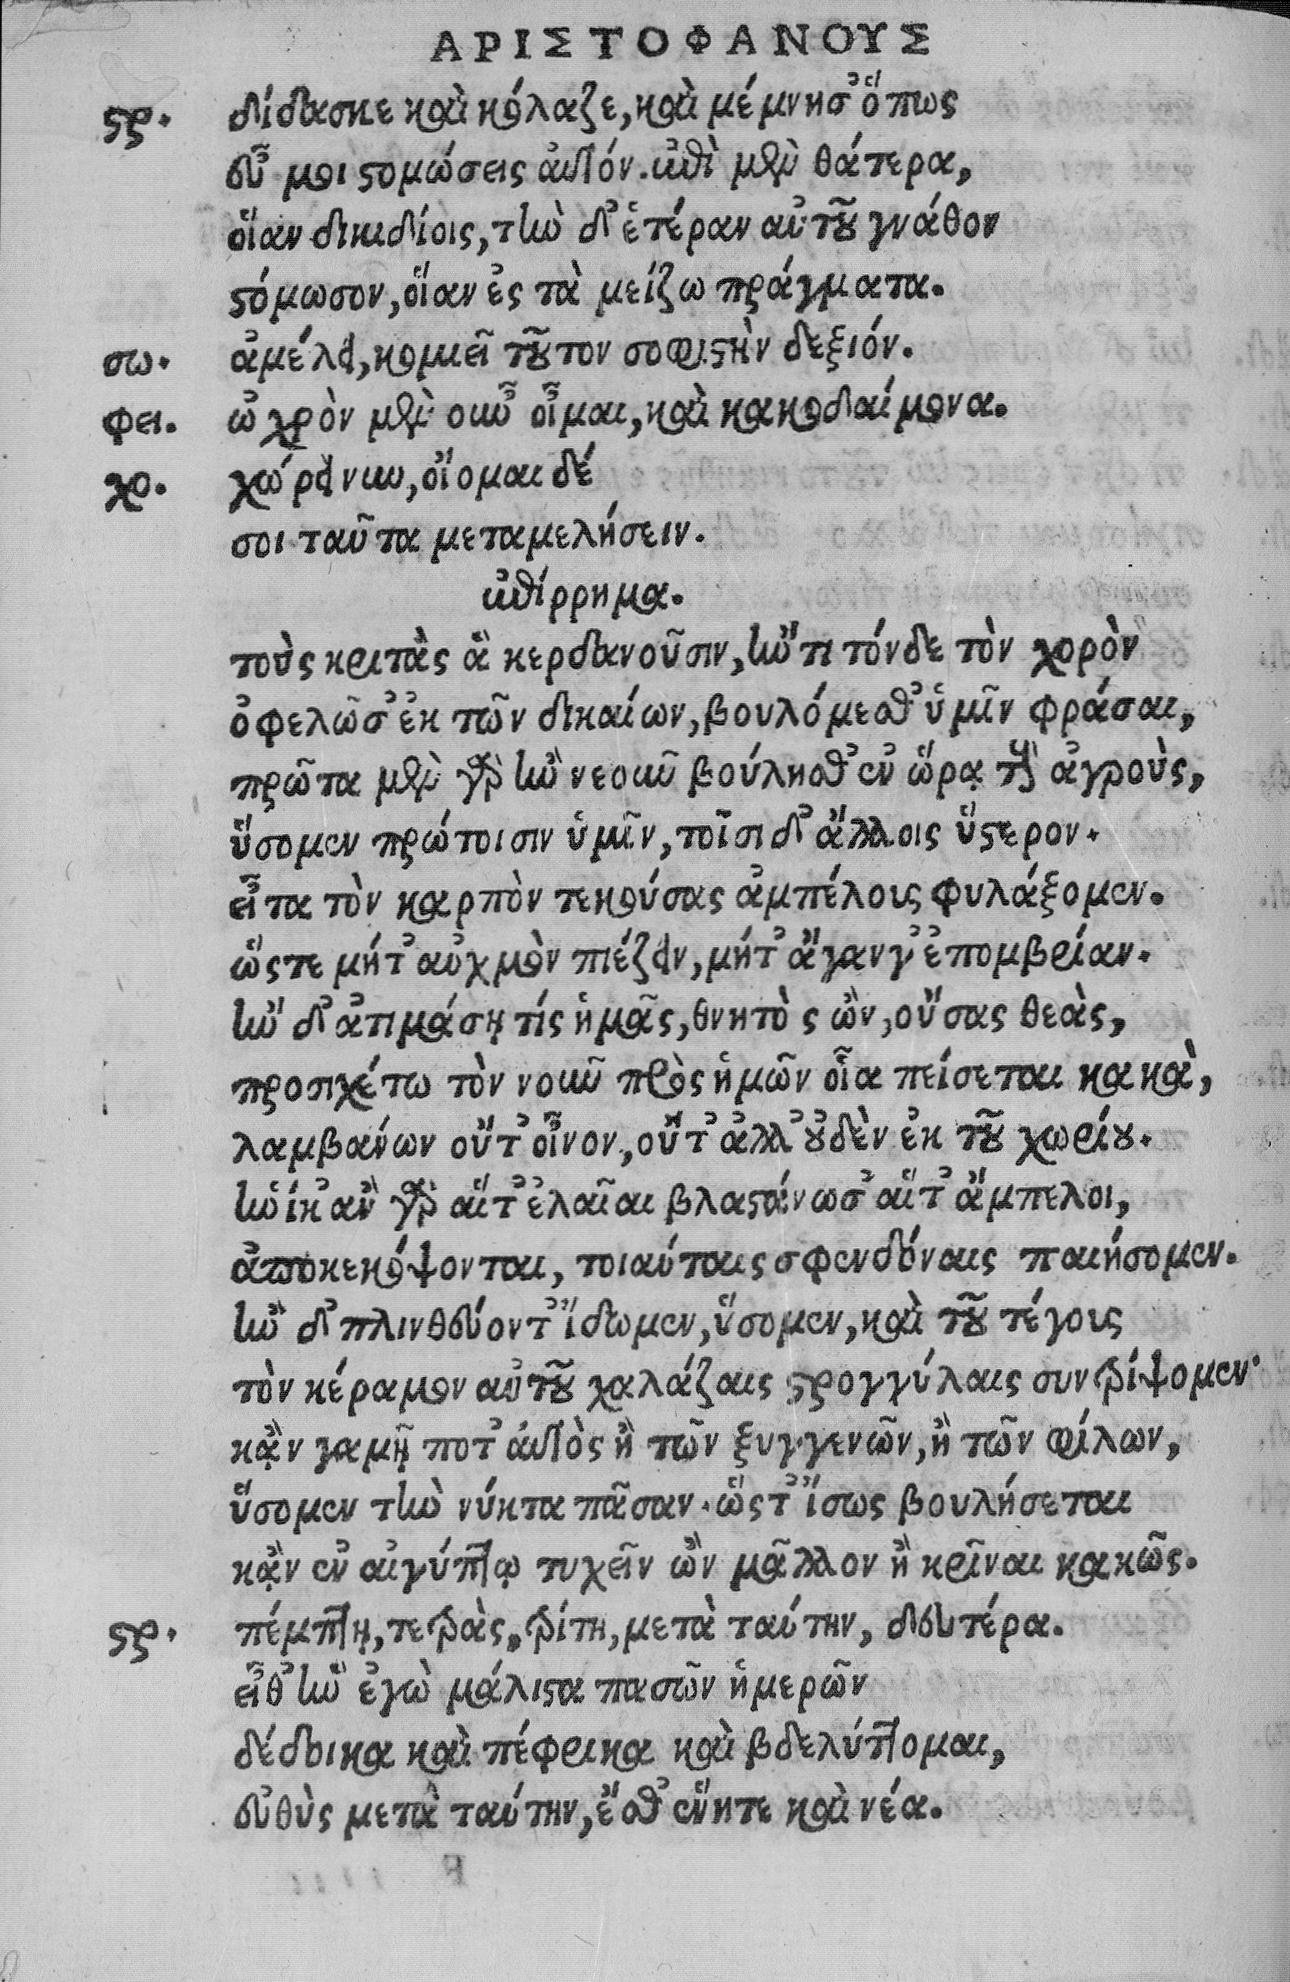 ΑΡΙΣΤΟΦΑΝΟΥΣ
στρ. δίδασκε καὶ κόλαζε, καὶ μέμνησ' ὅπως
εὖ μοι στομώσεις αὐτόν. ἐπὶ μὲν θάτερα,
οἵαν δικιδίοις, τὴν δ' ἑτέραν αὐτοῦ γνάθον
στόμωσον, οἵαν ἐς τὰ μείζω πράγματα.
σω. ἀμέλει, κομιεῖ τοῦτον σοφιστὴν δεξιόν.
φει. ὠχρὸν μὲν οὖν οἶμαι, καὶ κακοδαίμονα.
χο. χώρει νυν, οἴομαι δέ
σοι ταῦτα μεταμελήσειν.
ἐπίρρημα.
τοὺς κριτὰς ἃ κερδανοῦσιν, ἤν τι τόνδε τὸν χορὸν
ὀφελῶσ' ἐκ τῶν δικαίων, βουλόμεσθ' ὑμῖν φράσαι,
πρῶτα μὲν γὰρ ἢν νεοῦν βούλησθ' ἐν ὥρᾳ τοὺς ἀγροὺς,
ὕσομεν πρώτοισιν ὑμῖν, τοῖσι δ' ἄλλοις ὕστερον.
εἶτα τὸν καρπὸν τεκούσας ἀμπέλους φυλάξομεν.
ὥστε μήτ' αὐχμὸν πιέζειν, μήτ' ἄγαν γ' ἐπομβρίαν.
ἢν δ' ἀτιμάσῃ τίς ἡμᾶς, θνητὸς ὢν, οὔσας θεὰς,
προσχέτω τὸν νοῦν πρὸς ἡμῶν οἷα πείσεται κακὰ,
λαμβάνων οὔτ' οἶνον, οὔτ' ἀλλ' οὐδὲν ἐκ τοῦ χωρίου.
ἡνίκ' ἂν γὰρ αἵτ' ἐλαῖαι βλαστάνωσ' αἵτ' ἄμπελοι,
ἀποκεκόψονται, τοιαύταις σφενδόναις παιήσομεν.
ἢν δὲ πλινθεύοντ' ἴδωμεν, ὕσομεν, καὶ τοῦ τέγους
τὸν κέραμον αὐτοῦ χαλάζαις στρογγύλαις συντρίψομεν·
κᾂν γαμῇ ποτ' αὐτὸς ἢ τῶν ξυγγενῶν, ἢ τῶν φίλων,
ὕσομεν τὴν νύκτα πᾶσαν. ὥστ' ἴσως βουλήσεται
κᾂν ἐν αἰγύπτῳ τυχεῖν ὢν μᾶλλον ἢ κρῖναι κακῶς.
στρ. πέμπτη, τετρὰς, τρίτη, μετὰ ταύτην, δευτέρα.
εἶθ' ἣν ἐγὼ μάλιστα πασῶν ἡμερῶν
δέδοικα καὶ πέφρικα καὶ βδελύττομαι,
εὐθὺς μετὰ ταύτην, ἔσθ' ἕνη τε καὶ νέα.